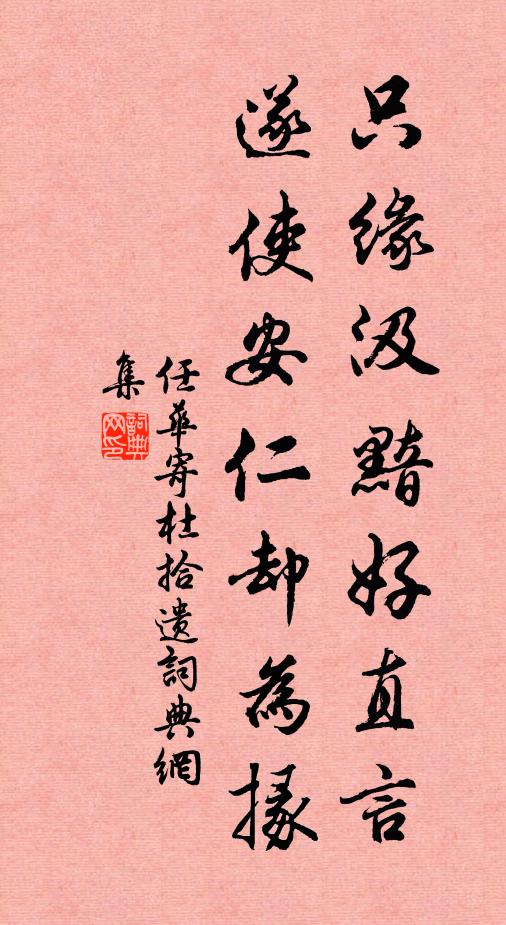 只緣汲黯好直言
遂使安仁却為掾
任華寄杜拾遺詞典網
集
詞典
网印